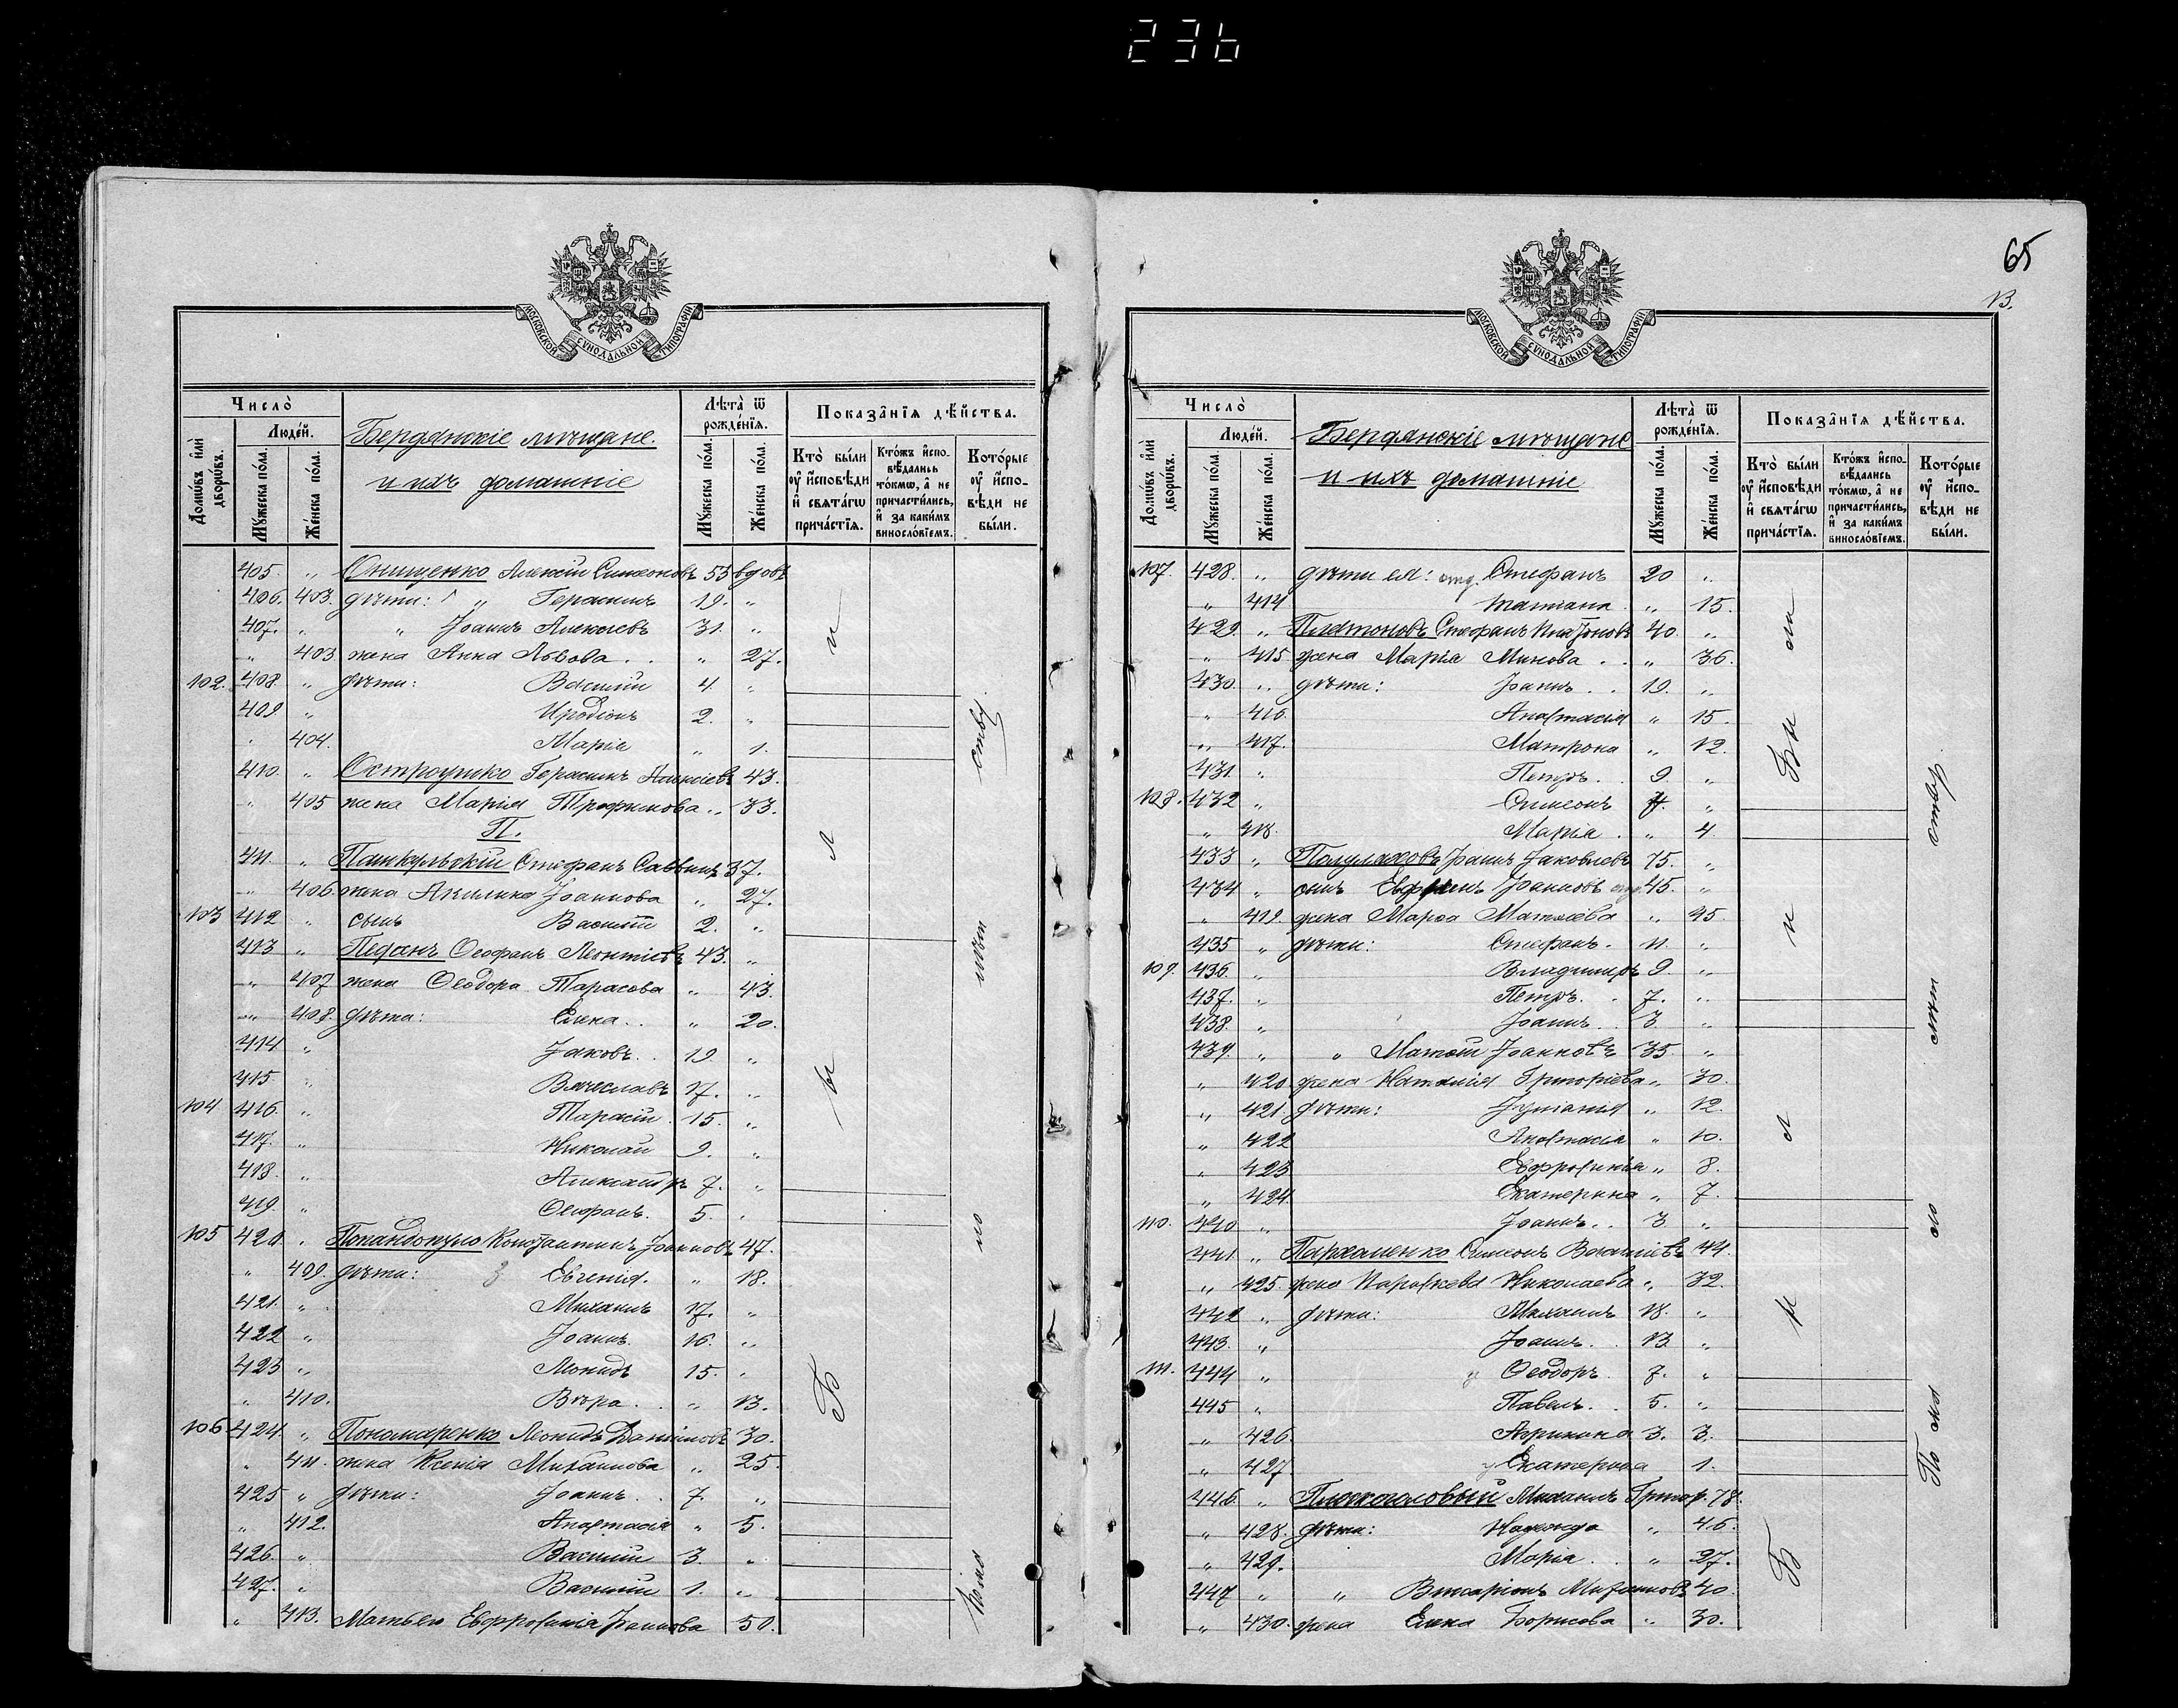 236
МОСКОВСКОЙ СУНОДАЛЬНОЙ ТИПОГРАФІИ
Число̀
Людéй.
Домѡвъ и҆лѝ дворѡвъ.
Мꙋжеска пóла.
Жéнска пóла.
Бердянскіе мѣщане
и ихъ домашніе
Лѣта̀ ѿ рождéнїѧ.
Мꙋжеска пóла.
Жéнска пóла.
Показа̂нїѧ дѣ́йства.
Кто̀ бы́ли оу҆ и҆сповѣ́ди и҆ свѧта́гѡ прича́стїѧ.
Кто́жъ и҆спо-вѣ́дались то́кмѡ, а҆ не причасти́лись, и҆ за каки́мъ винослóвїемъ.
Котóрые оу҆ и҆спо-вѣ́ди не бы́ли.
405. „ Онищенко Алексій Симеоновъ 53 вдовъ
406. 403. дѣти: „ Герасимъ 19. „
407. „ „ Іоаннъ Алексіевъ 31. „
„ 403 жена Анна Львова . . „ 27.
102. 408. „ дѣти: Василій 4. „
409. „ Иродіонъ 2. „
„ 404. Марія „ 1.
410. „ Остроушко Герасимъ Алексіевъ 43.
„ 405 жена Марія Трофимова „ 33.
П.
411. „ Стефанъ Саввинъ 37.
„ 406. жена Акилина Іоаннова „ 27.
103 412 „ сынъ Василій 2. „
413 „ Педанъ Ѳеофанъ Леонтіевъ 43. „
„ 407 жена Ѳеодора Тарасова „ 43.
„ 408. дѣти: Елена . . „ 20.
414 „ Іаковъ . . 19 „
415 „ Вячеславъ 17. „
104 416. „ Тарасій 15. „
417. „ Николай 9. „
418. „ Александръ 7. „
419. „ Ѳеофанъ. 5. „
105 420. „ Попандопуло Константинъ Іоанновъ 47.
„ 409. дѣти: Евгенія. „ 18.
421. „ Михаилъ 17. „
422 „ Іоаннъ. 16. „
423 „ Леонидъ 15. „
„ 410. Вѣра . . „ 13.
106 424. „ Пономаренко Леонидъ Даніиловъ 30.
„ 411. жена Ксенія Михаилова „ 25.
425 „ дѣти: Іоаннъ . . 7. „
„ 412. Анастасія „ 5.
426. „ Василій 3. „
427. „ Василій 1. „
„ 413. Мать его Евфросинія Іоаннова 50.
Б ы л и
По мал лѣт ству
65
13.
МОСКОВСКОЙ СУНОДАЛЬНОЙ ТИПОГРАФІИ
Число̀
Людéй.
Домѡвъ и҆лѝ дворѡвъ.
Мꙋжеска пóла.
Жéнска пóла.
Бердянскіе мѣщане
и ихъ домашніе
Лѣта̀ ѿ рождéнїѧ.
Мꙋжеска пóла.
Жéнска пóла.
Показа̂нїѧ дѣ́йства.
Кто̀ бы́ли оу҆ и҆сповѣ́ди и҆ свѧта́гѡ прича́стїѧ.
Кто́жъ и҆спо-вѣ́дались то́кмѡ, а҆ не причасти́лись, и҆ за каки́мъ винослóвїемъ.
Котóрые оу҆ и҆спо-вѣ́ди не бы́ли.
107. 428. „ дѣти ея: отд. Стефанъ 20 „
„ 414 Татіана . „ 15.
429. „ Платоновъ Стефанъ Платоновъ 40. „
„ 415 жена Марія Минова . . „ 36.
430. „ дѣти: Іоаннъ . . 19. „
„ 416. Анастасія „ 15.
„ 417. Матрона „ 12.
431. „ Петръ . . 9. „
108. 432 „ Симеонъ 7. „
„ 418. Марія . „ 4
433 „ Іоаннъ Іаковлевъ 75. „
434 „ сынъ Іоанновъ отд. 45. „
„ 419. жена Марѳа Матѳіева „ 45.
435 „ дѣти: Стефанъ . 11. „
109. 436. „ Владиміръ 9. „
437. „ Петръ. . 7. „
438. „ Іоаннъ . . 3 „
439. „ „ Матѳій Іоанновъ 35. „
„ 420. жена Наталія Григоріева „ 30.
„ 421. дѣти: Іуліанія „ 12.
„ 422 Анастасія „ 10.
„ 423 Евфросинія „ 8.
„ 424. Екатерина „ 7.
110. 440 „ Іоаннъ . . 3 „
441. „ Пархоменко Симеонъ Василіевъ 44.
„ 425. жена Параскева Николаева „ 32.
442 „ дѣти: Михаилъ 18. „
443. „ Іоаннъ. . 13 „
111. 444 „ Ѳеодоръ. 7. „
445 „ Павелъ . . 5. „
„ 426. 3. 3.
„ 427. Екатерина 1.
446. „ Михаилъ Григор. 78.
„ 428. дѣти: Надежда „ 46.
„ 429. Марія . . „ 27.
447 „ „ Виссаріонъ Михаиловъ 40.
„ 430. жена Елена Борисова „ 30.
Б ы л и
По мал лѣт ству